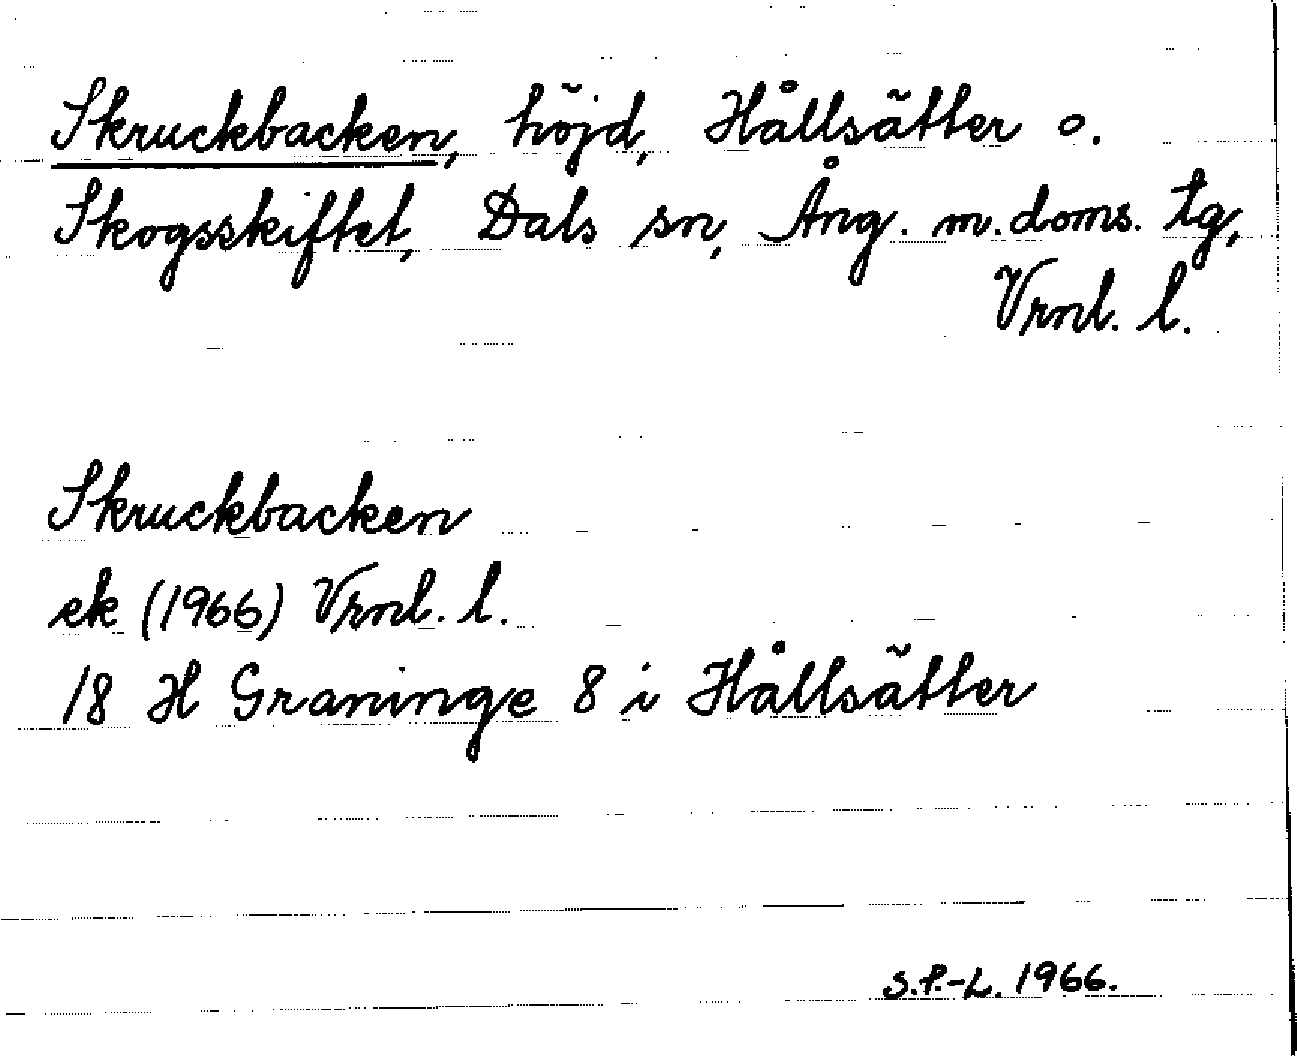 Skruckbacken, höjd, Hållsätter o.
Skogsskiftet, Dals sn, Ång. m. doms. tg,
Vrnl. l.
Skruckbacken
ek (1966) Vrnl. l.
18 H Graninge 8 i Hållsätter
S.P.-L. 1966.